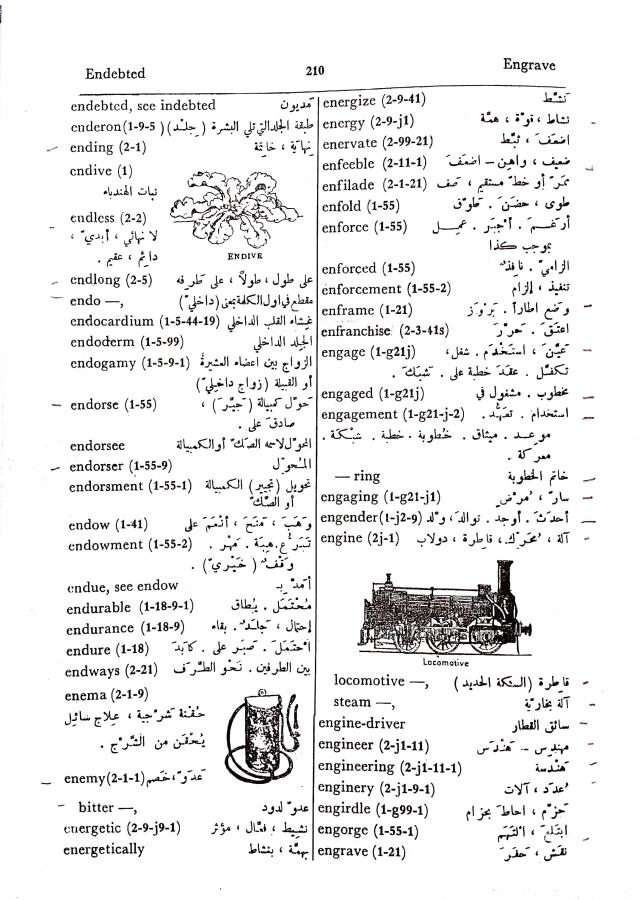 Endebted 210 Engrave
endebted, see indebted مَديون
enderon(1-9-5) طبقة الجلد التي تلي البشرة (جِلد)
ending (2-1) نِهاية ، خاتِمة
endive (1)
نبات الهندباء
ENDIVE
endless (2-2)
لا نهائي ، أبديّ ،
دائم ، عقيم .
endlong (2-5) على طول ، طولاً ، على طرفه
endo —, مقطع في اول الكلمة بمعنى (داخلي)
endocardium (1-5-44-19) غِشاء القلب الداخلي
endoderm (1-5-99) الجِلد الداخلي
endogamy (1-5-9-1) الزواج بين اعضاء العشيرة
أو القبيلة (زواج داخليّ)
endorse (1-55) حَوّل كمبيالة (جَيّرَ) ،
صادق على .
endorsee المحوّل لاسمه الصكّ أو الكمبيالة
endorser (1-55-9) المُحوّل
endorsment (1-55-1) تحويل (تجيير) الكمبيالة
أو الصكّ
endow (1-41) وهَبَ ، مَنَحَ ، أنْعَمَ على
endowment (1-55-2) تَبَرّع . هِبة . مَهر .
وَقف (خَيْري) .
endue, see endow أمدّ بـ
endurable (1-18-9-1) مُحْتمَل . يُطاق
endurance (1-18-9) إحتمال ، جَلَد . بقاء
endure (1-18) احْتمَلَ . صَبَر على . كابَدَ
endways (2-21) بين الطرفين . نَحوَ الطَّرَف
enema (2-1-9)
حُقنة شَرجية ، علاج سائل
يُحْقَن من الشَّرج .
enemy(2-1-1) عَدوّ ، خَصم
bitter —, عدوّ لدود
energetic (2-9-j9-1) نشيط ، فعّال ، مؤثر
energetically بهِمّة ، بنشاط
energize (2-9-41) نَشّط
energy (2-9-j1) نشاط ، قوّة ، همّة
enervate (2-99-21) اضعَفَ ، ثبّط
enfeeble (2-11-1) ضعيف ، واهِن – اضعَفَ
enfilade (2-1-21) ممرّ أو خطّ مستقيم ، صَف
enfold (1-55) طوى ، حضَنَ . طوّق
enforce (1-55) أرغَمَ . أجبَر . عمِل
بموجب كذا
enforced (1-55) الزاميّ . نافذ
enforcement (1-55-2) تنفيذ ، إلزام
enframe (1-21) وضع اطاراً . بَرْوَز
enfranchise (2-3-41s) اعتقَ . حرّرَ
engage (1-g21j) عَيّنَ ، استَخْدَم . شغل ،
تكفّل . عقَد خطبة على . شبَكَ .
engaged (1-g21j) مخطوب . مشغول في
engagement (1-g21-j-2) استخدام . تعهّد .
موعد . ميثاق . خُطوبة . خطبة . شبْكة .
معركة .
— ring خاتم الخطوبة
engaging (1-g21-j1) سارّ ،
engender(1-j2-9) أحدَثَ . أوجد . توالدَ ، ولد
engine (2j-1) آلة ، مُحَرّك ، قاطرة ، دولاب
Locomotive
locomotive —, قاطرة (السكة الحديد)
steam —, آلة بخاريّة
engine-driver سائق القطار
engineer (2-j1-11) مهندِس – هَنْدَسَ
engineering (2-j1-11-1) هَنْدسة
enginery (2-j1-9-1) عُدَد ، آلات
engirdle (1-g99-1) حزَّم ، احاطَ بحِزام
engorge (1-55-1) ابتلَع ، التَهَم
engrave (1-21) نقَش ، حفَرَ